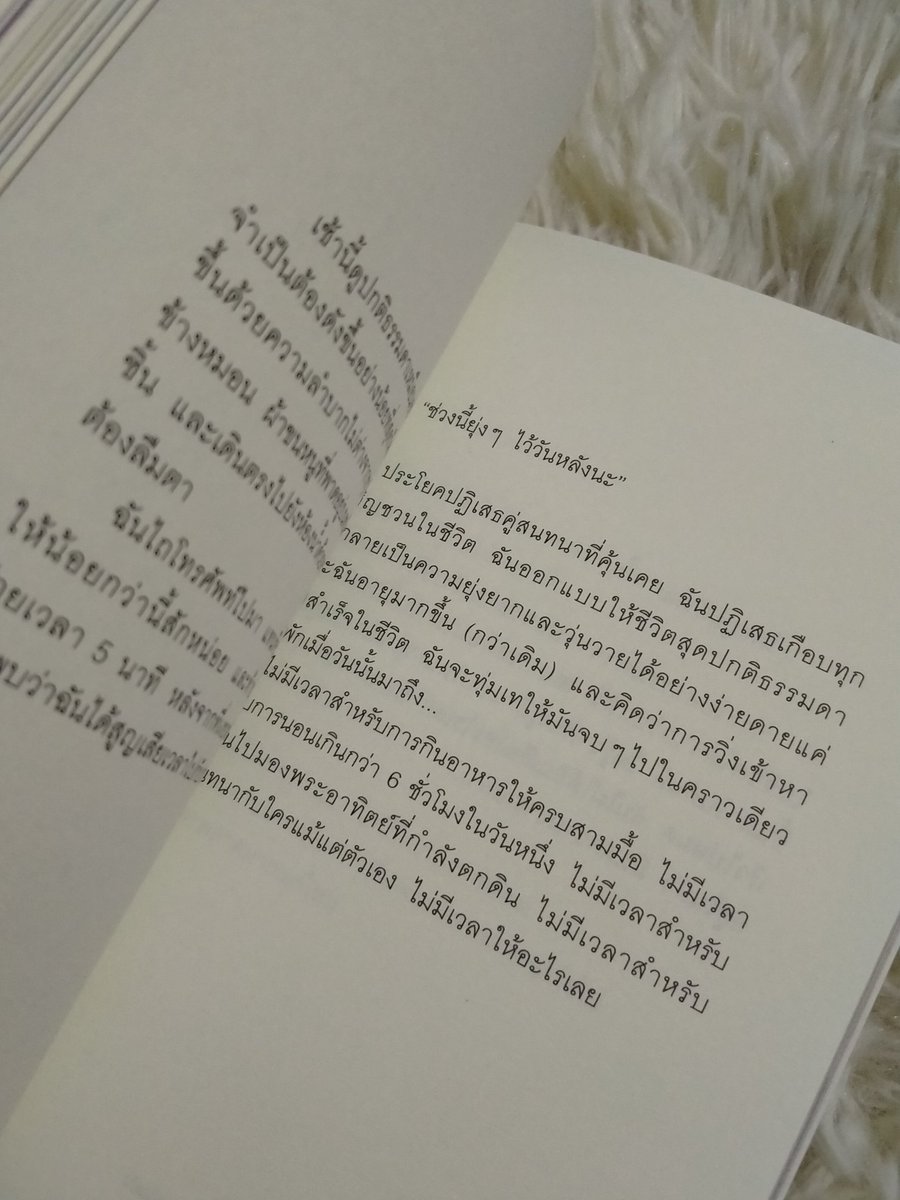 เช้านี้ดูปกติธรรมดา
จำเป็นต้องดังขึ้นอย่างน้อย
ขึ้นด้วยความลำบากไม่ต่าง
ข้างหมอน ผ้าขนหนูที่พาด
ชิ้น และเดินตรงไปยังห้องน้ำ
ต้องลืมตา
ฉันไถโทรศัพท์ไปมา
ให้น้อยกว่านี้สักหน่อย
เวลา 5 นาที หลังจาก
พบว่าฉันได้สูญเสียเวลาไป
“ช่วงนี้ยุ่งๆ ไว้วันหลังนะ”
ประโยคปฏิเสธคู่สนทนาที่คุ้นเคย ฉันปฏิเสธเกือบทุก
ชวนในชีวิต ฉันออกแบบให้ชีวิตสุดปกติธรรมดา
กลายเป็นความยุ่งยากและวุ่นวายได้อย่างง่ายดายแค่
ฉันอายุมากขึ้น (กว่าเดิม) และคิดว่าการวิ่งเข้าหา
สำเร็จในชีวิต ฉันจะทุ่มเทให้มันจบๆไปในคราวเดียว
พักเมื่อวันนั้นมาถึง...
ไม่มีเวลาสำหรับการกินอาหารให้ครบสามมื้อ ไม่มีเวลา
การนอนเกินกว่า 6 ชั่วโมงในวันหนึ่ง ไม่มีเวลาสำหรับ
ไปมองพระอาทิตย์ที่กำลังตกดิน ไม่มีเวลาสำหรับ
กับใครแม้แต่ตัวเอง ไม่มีเวลาให้อะไรเลย